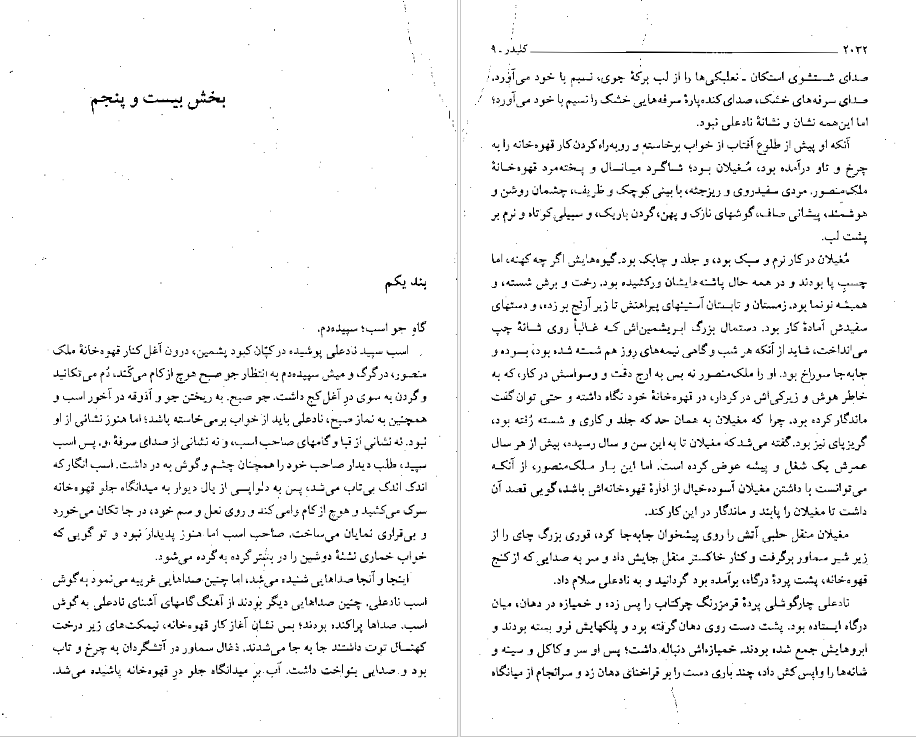 بخش بیست و پنجم
بند یکم
گاوِ جو است؛ سپیده‌دم.
اسب سپید نادعلی پوشیده در کپّان کبود پشمین، درون آغل کنار قهوه‌خانهٔ ملک
منصور، در گرگ و میش سپیده‌دم به انتظار جو صبح هوچ از کام می‌کَند، دُم می‌تکانید
و گردن به سوی درِ آغل کج داشت. جو صبح. به ریختن جو و آذوقه در آخور است و
همچنین به نماز صبح، نادعلی باید از خواب برمی‌خاسته باشد؛ اما هنوز نشانی از او
نبود. نه نشانی از قبا و گامهای صاحب اسب، و نه نشانی از صدای سرفهٔ او. پس اسب
سپید، طلب دیدار صاحب خود را همچنان چشم و گوش به در داشت. اسب انگار که
اندک اندک بی‌تاب می‌شد، پس به دلواپسی از یال دیوار به میدانگاه جلو قهوه‌خانه
سرک می‌کشید و هوچ از کام وامی‌کند و روی نعل و سم خود، در جا تکان می‌خورد
و بی‌قراری نمایان می‌ساخت. صاحب اسب اما هنوز پدیدار نبود و تو گویی که
خواب خماری نشئهٔ دوشین را در بستر گرده به گرده می‌شود.
اینجا و آنجا صداهایی شنیده می‌شد، اما چنین صداهایی غریبه می‌نمود به گوش
اسب نادعلی. چنین صداهایی دیگر بودند از آهنگ گامهای آشنای نادعلی به گوش
اسب. صداها پراکنده بودند؛ پس نشان آغاز کار قهوه‌خانه، نیمکت‌های زیر درخت
کهنسال توت داشتند جا به جا می‌شدند. ذغال سماور در آتشگردان به چرخ و تاب
بود و صدایی بنواخت داشت. آب بر میدانگاه جلو در قهوه‌خانه پاشیده می‌شد.
۲۰۳۲ کلیدر ـ ۹
صدای شستشوی استکان ـ نعلبکی‌ها را از لب برکهٔ جوی، نسیم با خود می‌آورد.
صدای سرفه‌های خشک، صدای کنده‌پارهٔ سرفه‌هایی خشک را نسیم با خود می‌آورد؛
اما این‌همه نشان و نشانهٔ نادعلی نبود.
آنکه او پیش از طلوع آفتاب از خواب برخاسته و روبه‌راه کردن کار قهوه‌خانه را به
چرخ و تاو درآمده بود، مُغیلان بود؛ شاگرد میانسال و پخته‌مرد قهوه‌خانهٔ
ملک‌منصور. مردی سفیدروی و ریزجثه، با بینی کوچک و ظریف، چشمان روشن و
هوشمند، پیشانی صاف، گوشهای نازک و پهن، گردن باریک، و سبیلی کوتاه و نرم بر
پشت لب.
مُغیلان در کار نرم و سبک بود، و جلد و چابک بود. گیوه‌هایش اگر چه کهنه، اما
چسب پا بودند و در همه حال پاشنه‌هایشان ورکشیده بود. رخت و برش شسته، و
همیشه نونما بود. زمستان و تابستان آستینهای پیراهنش تا زیر آرنج بر زده، و دستهای
سفیدش آمادهٔ کار بود. دستمال بزرگ ابریشمین‌اش که غالباً روی شانهٔ چپ
می‌انداخت، شاید از آنکه هر شب و گاهی نیمه‌های روز هم شسته شده بود، بسوده و
جابه‌جا سوراخ بود. او را ملک‌منصور نه بس به ارج دقت و وسواسش در کار، که به
خاطر هوش و زیرکی‌اش در کردار، در قهوه‌خانهٔ خود نگاه داشته و حتی توان گفت
ماندگار کرده بود. چرا که مغیلان به همان حد که جلد و کاری و شسته رُفته بود،
گریزپای نیز بود. گفته می‌شد که مغیلان تا به این سن و سال رسیده، بیش از هر سال
عمرش یک شغل و پیشه عوض کرده است. اما این بار ملک‌منصور، از آنکه
می‌توانست با داشتن مغیلان آسوده‌خیال از ادارهٔ قهوه‌خانه‌اش باشد، گویی قصد آن
داشت تا مغیلان را پابند و ماندگار در این کار کند.
مغیلان منقل حلبی آتش را روی پیشخوان جابه‌جا کرد، قوری بزرگ چای را از
زیر شیر سماور برگرفت و کنار خاکستر منقل جایش داد و سر به صدایی که از کنج
قهوه‌خانه، پشت پردهٔ درگاه، برآمده بود گردانید و به نادعلی سلام داد.
نادعلی چارگوشلی پردهٔ قرمزرنگ چرکتاب را پس زده و خمیازه در دهان، میان
درگاه ایستاده بود. پشت دست روی دهان گرفته بود و پلکهایش فرو بسته بودند و
ابروهایش جمع شده بودند. خمیازه‌اش دنباله داشت؛ پس او سر و کاکل و سینه و
شانه‌ها را واپس کش داد، چند باری دست را بو فراخنای دهان زد و سرانجام از میانگاه